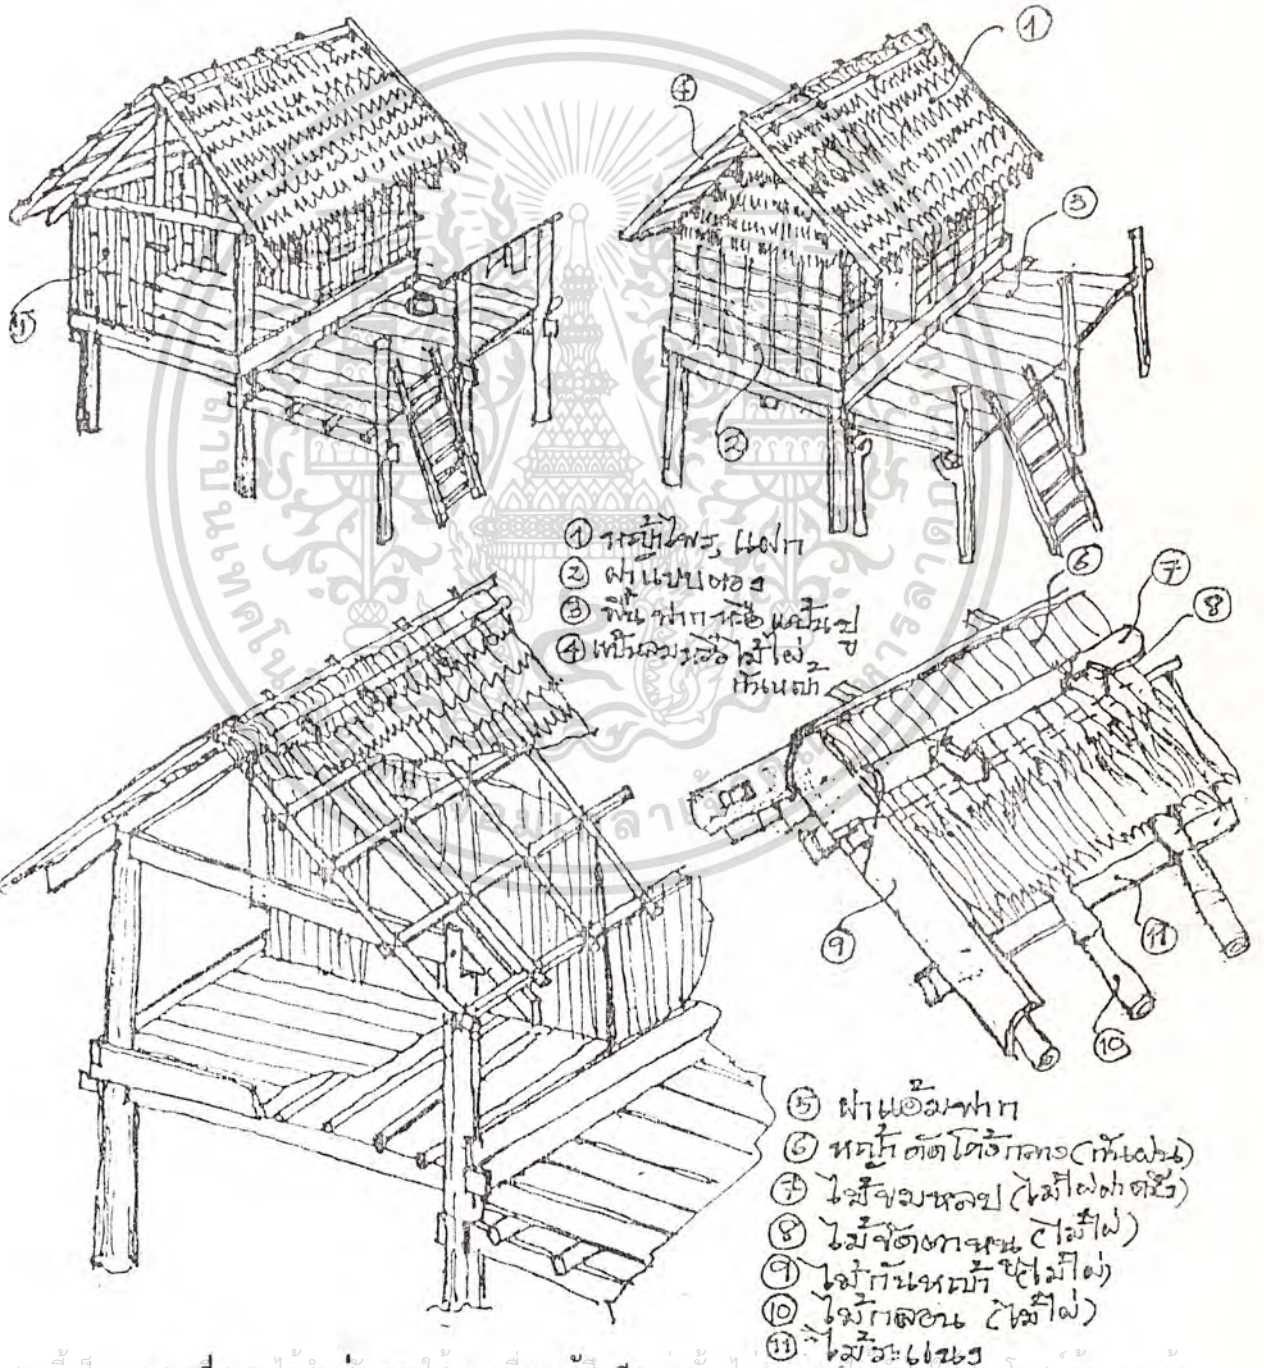 ① หญ้าไพร, แฝก
② ฝาแบบตอง
③ พื้นฟากหรือแป้นปู
④ แป้นลมหรือไม้ไผ่
กันหญ้า
⑤ ฝาแอ้มฟาก
⑥ หญ้าดัดโค้งกลาง (กันฝน)
⑦ ไม้ข่มหลบ (ไม้ไผ่ผ่าครึ่ง)
⑧ ไม้ขัดตาหนู (ไม้ไผ่)
⑨ ไม้กันหญ้า (ไม้ไผ่)
⑩ ไม้กลอน (ไม้ไผ่)
⑪ ไม้ระแนง